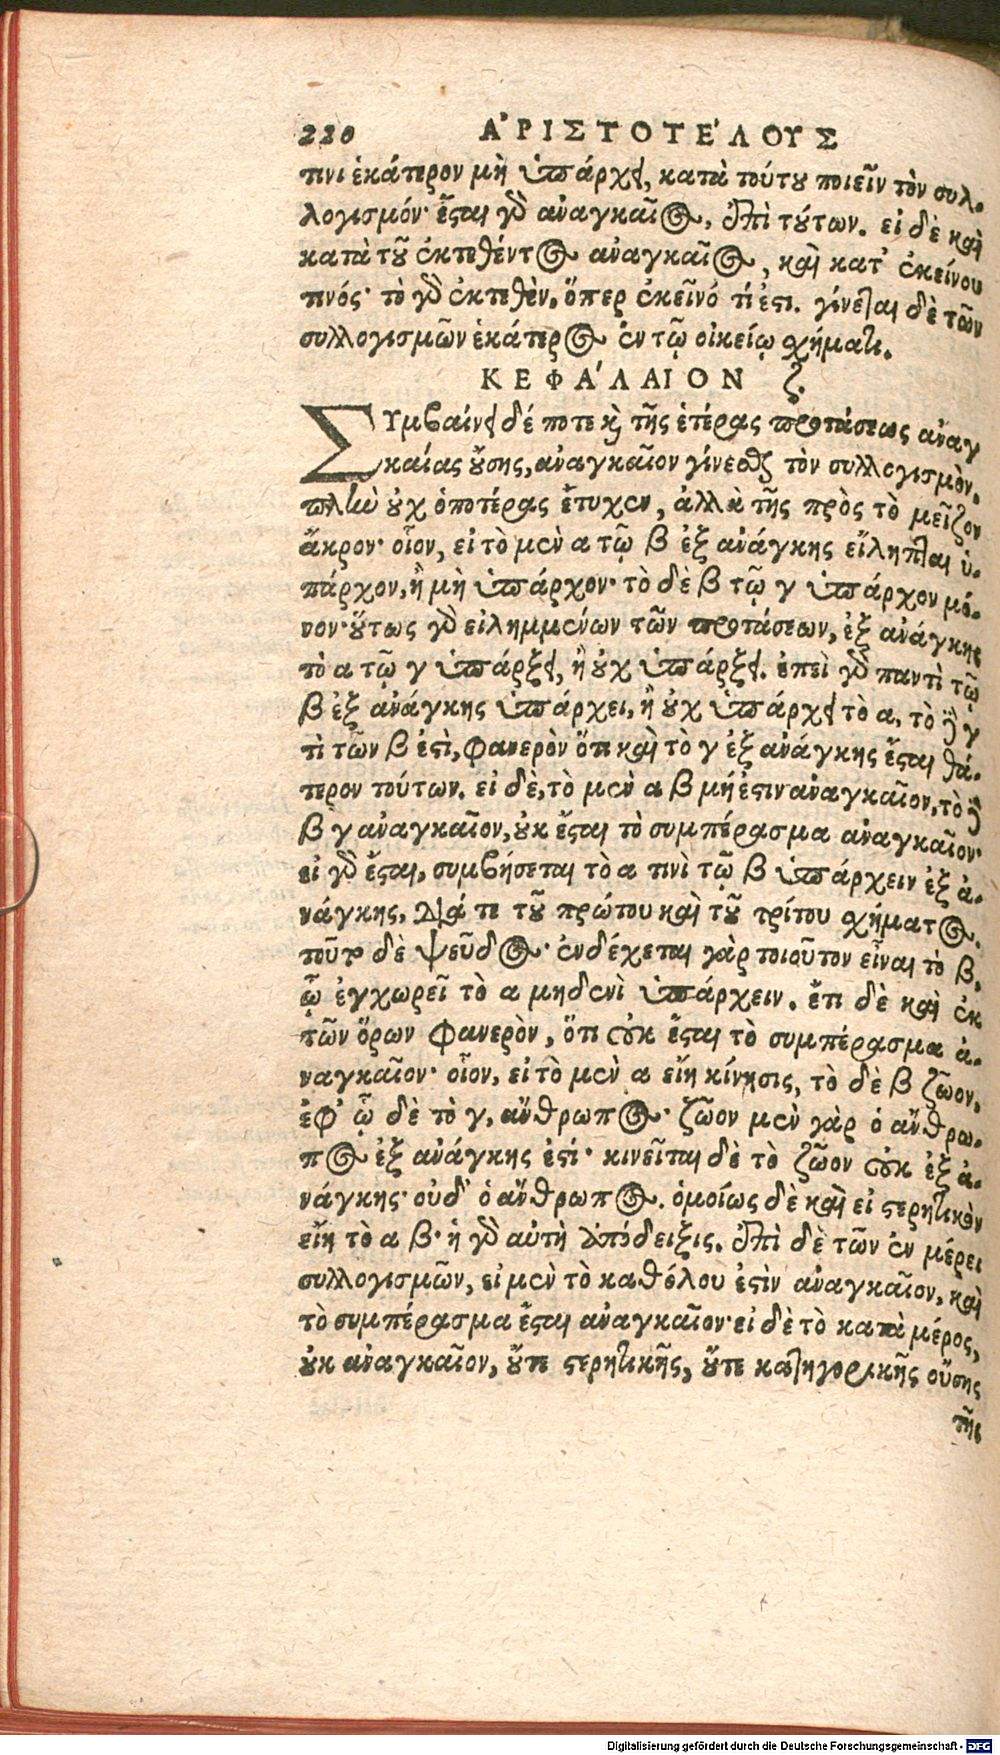 220 ἈΡΙΣΤΟΤΈΛΟΥΣ
τινι ἑκάτερον μὴ ὑπάρχει, κατὰ τούτου ποιεῖν τὸν συλ-
λογισμόν· ἔσται γὰρ ἀναγκαῖος, ἐπὶ τούτων. εἰ δὲ καὶ
κατὰ τοῦ ἐκτεθέντος ἀναγκαῖος, καὶ κατ' ἐκείνου
τινός· τὸ γὰρ ἐκτεθὲν, ὅπερ ἐκεῖνό τί ἐστι. γίνεται δὲ τῶν
συλλογισμῶν ἑκάτερος ἐν τῷ οἰκείῳ σχήματι.
ΚΕΦΆΛΑΙΟΝ ζ.
Συμβαίνει δέ ποτε καὶ τῆς ἑτέρας προτάσεως ἀναγ
καίας οὔσης, ἀναγκαῖον γίνεσθαι τὸν συλλογισμὸν.
πλὴν οὐχ ὁποτέρας ἔτυχεν, ἀλλὰ τῆς πρὸς τὸ μεῖζον
ἄκρον· οἷον, εἰ τὸ μὲν α τῷ β ἐξ ἀνάγκης εἴληπται ὑ-
πάρχον, ἢ μὴ ὑπάρχον· τὸ δὲ β τῷ γ ὑπάρχον μό-
νον· οὕτως γὰρ εἰλημμένων τῶν προτάσεων, ἐξ ἀνάγκης
τὸ α τῷ γ ὑπάρξει, ἢ οὐχ ὑπάρξει. ἐπεὶ γὰρ παντὶ τῷ
β ἐξ ἀνάγκης ὑπάρχει, ἢ οὐχ ὑπάρχει τὸ α, τὸ δὲ γ
τὶ τῶν β ἐστὶ, φανερὸν ὅτι καὶ τὸ γ ἐξ ἀνάγκης ἔσται θά-
τερον τούτων. εἰ δὲ, τὸ μὲν α β μή ἐστιν ἀναγκαῖον, τὸ δὲ
β γ ἀναγκαῖον, οὐκ ἔσται τὸ συμπέρασμα ἀναγκαῖον·
εἰ γὰρ ἔσται, συμβήσεται τὸ α τινὶ τῷ β ὑπάρχειν ἐξ ἀ-
νάγκης, διά τε τοῦ πρώτου καὶ τοῦ τρίτου σχήματος.
τοῦτο δὲ ψεῦδος· ἐνδέχεται γὰρ τοιοῦτον εἶναι τὸ β,
ᾧ ἐγχωρεῖ τὸ α μηδενὶ ὑπάρχειν. ἔτι δὲ καὶ ἐκ
τῶν ὅρων φανερὸν, ὅτι οὐκ ἔσται τὸ συμπέρασμα ἀ-
ναγκαῖον· οἷον, εἰ τὸ μὲν α εἴη κίνησις, τὸ δὲ β ζῶον,
ἐφ' ᾧ δὲ τὸ γ, ἄνθρωπος· ζῶον μὲν γὰρ ὁ ἄνθρω-
πος ἐξ ἀνάγκης ἐστί· κινεῖται δὲ τὸ ζῶον οὐκ ἐξ ἀ-
νάγκης· οὐδ' ὁ ἄνθρωπος. ὁμοίως δὲ καὶ εἰ στερητικὸν
εἴη τὸ α β· ἡ γὰρ αὐτὴ ἀπόδειξις. ἐπὶ δὲ τῶν ἐν μέρει
συλλογισμῶν, εἰ μὲν τὸ καθόλου ἐστὶν ἀναγκαῖον, καὶ
τὸ συμπέρασμα ἔσται ἀναγκαῖον· εἰ δὲ τὸ κατὰ μέρος,
οὐκ ἀναγκαῖον, οὔτε στερητικῆς, οὔτε κατηγορικῆς οὔσης
τῆς
Digitalisierung gefördert durch die Deutsche Forschungsgemeinschaft - DFG